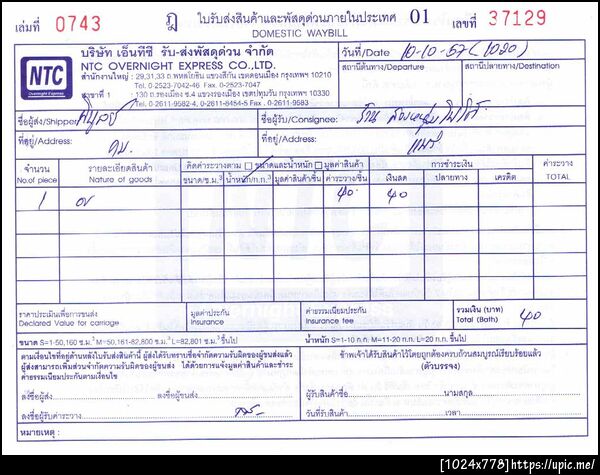 เล่มที่ 0743 ฎ ใบรับส่งสินค้าและพัสดุด่วนภายในประเทศ 01 เลขที่ 37129
DOMESTIC WAYBILL
บริษัท เอ็นทีซี รับ-ส่งพัสดุด่วน จำกัด
NTC OVERNIGHT EXPRESS CO.,LTD.
NTC
Overnight Express
สำนักงานใหญ่ : 29,31,33 ถ.พหลโยธิน แขวงสีกัน เขตดอนเมือง กรุงเทพฯ 10210
Tel. 0-2523-7042-46 Fax. 0-2523-7047
สาขาที่ 1 : 130 ถ.รองเมือง ซ.4 แขวงรองเมือง เขตปทุมวัน กรุงเทพฯ 10330
Tel. 0-2611-9582-4, 0-2611-8454-5 Fax : 0-2611-9583
วันที่/Date 10-10-57 (1020)
สถานีต้นทาง/Departure สถานีปลายทาง/Destination
ชื่อผู้ส่ง/Shipper ชื่อผู้รับ/Consignee: ร้าน
ที่อยู่/Address: กม. ที่อยู่/Address: แพร่
จำนวน รายละเอียดสินค้า คิดค่าระวางตาม ขนาดและน้ำหนัก มูลค่าสินค้า การชำระเงิน ค่าระวาง
No.of piece Nature of goods ขนาด/ซ.ม.³ น้ำหนัก/ก.ก.³ มูลค่าสินค้า/ชิ้น ค่าระวาง/ชิ้น เงินสด ปลายทาง เครดิต TOTAL
1 40 40
ราคาประเมินเพื่อการขนส่ง มูลค่าประกัน ค่าธรรมเนียมประกัน รวมเงิน (บาท)
Declared Value for carriage Insurance Insurance fee Total (Bath) 40
ขนาด S=1-50,160 ซม.³ M=50,161-82,800 ซม.³ L=82,801 ซม.³ ขึ้นไป น้ำหนัก S=1-10 ก.ก. M=11-20 ก.ก. L=20 ก.ก. ขึ้นไป
ตามเงื่อนไขที่อยู่ด้านหลังใบรับส่งสินค้านี้ ผู้ส่งได้รับทราบข้อจำกัดความรับผิดของผู้ขนส่งแล้ว
ผู้ส่งสามารถเพิ่มส่วนจำกัดความรับผิดของผู้ขนส่ง ได้ด้วยการแจ้งมูลค่าสินค้าและชำระ
ค่าธรรมเนียมประกันตามเงื่อนไข
ข้าพเจ้าได้รับสินค้าไว้โดยถูกต้องครบถ้วนสมบูรณ์เรียบร้อยแล้ว
(ตัวบรรจง)
ลงชื่อผู้ส่ง ลงชื่อผู้ขนส่ง
ผู้รับสินค้าชื่อ นามสกุล
ลงชื่อผู้รับค่าระวาง
วันที่รับสินค้า เวลา
หมายเหตุ :
[1024x778]https://upic.me/